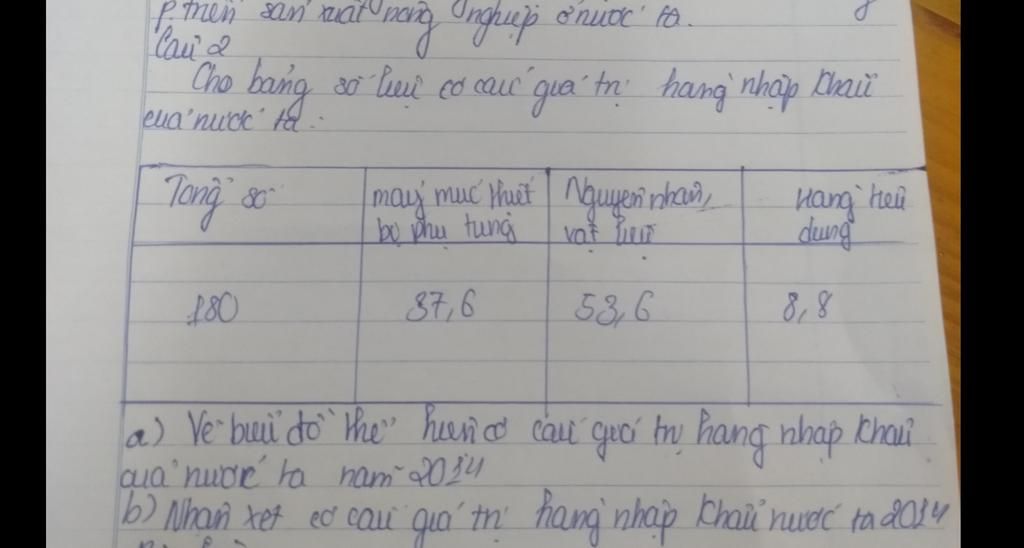 p. triển sản xuất nông nghiệp ở nước ta.
Câu 2
Cho bảng số liệu cơ cấu giá trị hàng nhập khẩu
của nước ta:
Tổng số
máy móc thiết
bị phụ tùng
Nguyên nhân,
vật liệu
Hàng tiêu
dùng
180
37,6
53,6
8,8
a) Vẽ biểu đồ thể hiện cơ cấu giá trị hàng nhập khẩu
của nước ta năm 2014
b) Nhận xét cơ cấu giá trị hàng nhập khẩu nước ta 2014